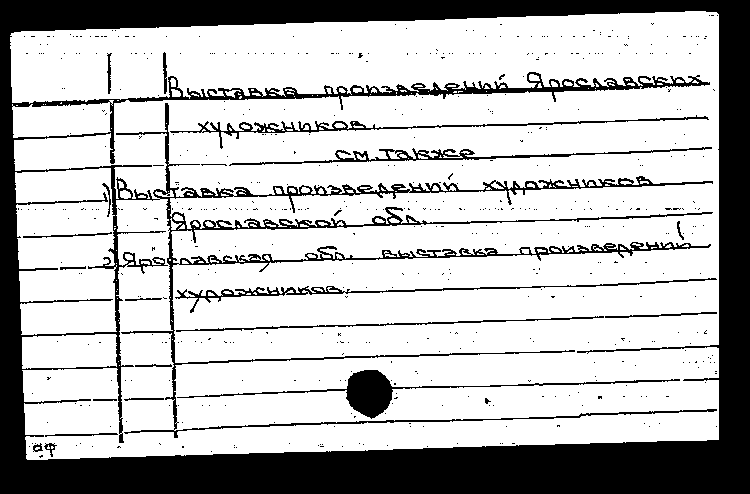 Выставка произведений Ярославских
художников.
см. также
1) Выставка произведений художников
Ярославской обл.
2) Ярославская обл. выставка произведений
художников.
аф